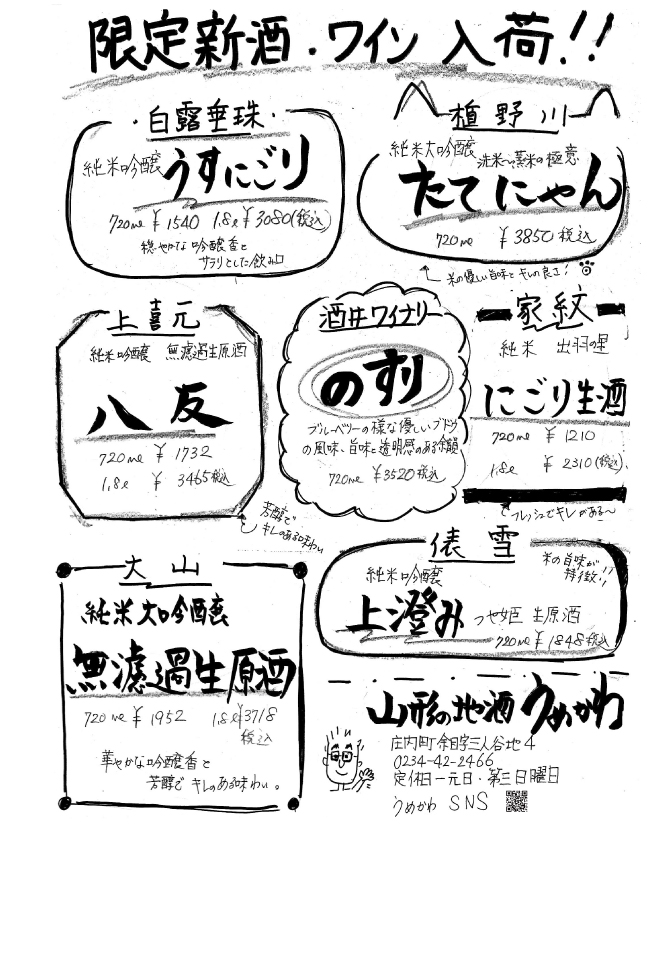 限定新酒・ワイン 入荷!!
・白露垂珠・
純米吟醸 うすにごり
720ml ¥1540 1.8ℓ ¥3080(税込)
穏やかな 吟醸香と
サラリとした飲み口
楯野川
純米大吟醸 洗米・蒸米の極意
たてにゃん
720ml ¥3850 税込
米の優しい旨味と キレの良さ!
上喜元
純米吟醸 無濾過生原酒
八友
720ml ¥1732
1.8ℓ ¥3465 税込
芳醇で
キレのある味わい
酒井ワイナリー
のすり
ブルーベリーの様な優しいブドウ
の風味、旨味と透明感のある余韻
720ml ¥3520 税込
家紋
純米 出羽の里
にごり生酒
720ml ¥1210
1.8ℓ ¥2310(税込)
フレッシュでキレがある〜
大山
純米大吟醸
無濾過生原酒
720ml ¥1952 1.8ℓ ¥3718
税込
華やかな吟醸香と
芳醇で キレのある味わい。
俵雪
純米吟醸
米の旨味が
特徴!!
上澄み つや姫 生原酒
720ml ¥1848 税込
山形の地酒 うめかわ
庄内町余目字三人谷地4
0234-42-2466
定休日 - 元日・第三日曜日
うめかわ SNS